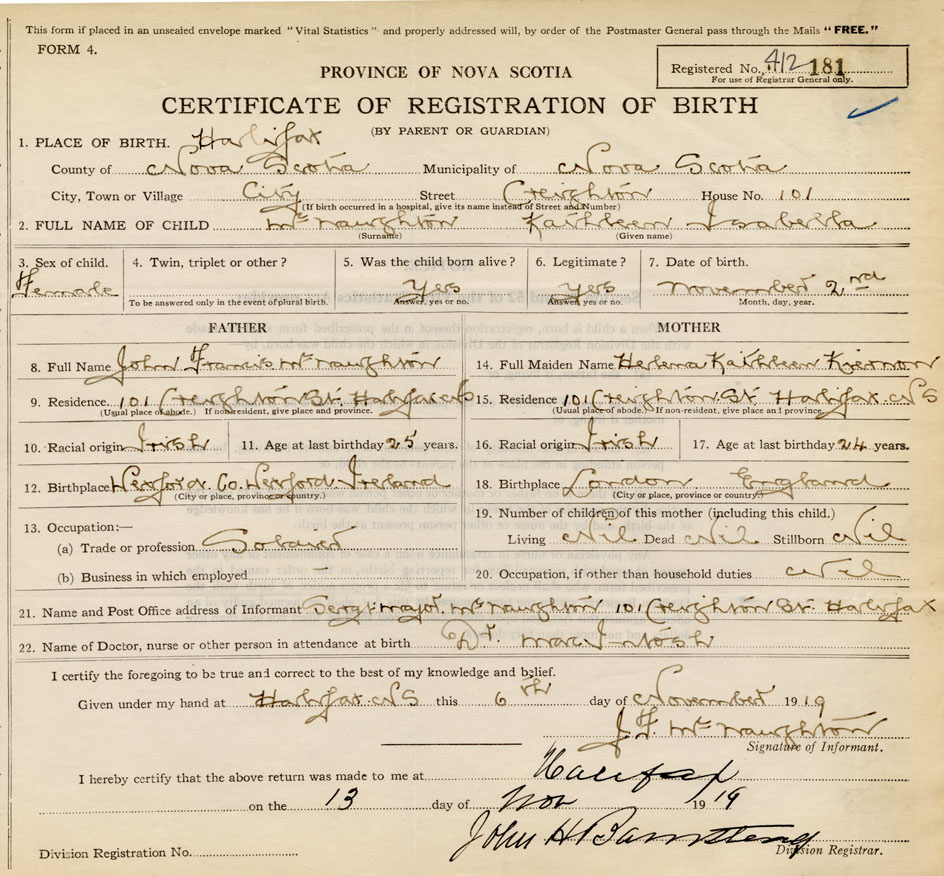 This form if placed in an unsealed envelope marked "Vital Statistics" and properly addressed will, by order of the Postmaster General pass through the Mails "FREE."
FORM 4.
Registered No. 412 181
For use of Registrar General only.
PROVINCE OF NOVA SCOTIA
CERTIFICATE OF REGISTRATION OF BIRTH
(BY PARENT OR GUARDIAN)
1. PLACE OF BIRTH. Halifax
County of Nova Scotia Municipality of Nova Scotia
City, Town or Village City Street Creighton House No. 101
(If birth occurred in a hospital, give its name instead of Street and Number)
2. FULL NAME OF CHILD McNaughton Kathleen Isabella
(Surname) (Given name)
3. Sex of child. 4. Twin, triplet or other? 5. Was the child born alive? 6. Legitimate? 7. Date of birth.
Female yes yes November 2nd
To be answered only in the event of plural birth. Answer, yes or no. Answer, yes or no. Month, day, year.
FATHER MOTHER
8. Full Name John Francis McNaughton 14. Full Maiden Name Helena Kathleen Kiernon
9. Residence 101 Creighton St. Halifax NS 15. Residence 101 Creighton St. Halifax. NS
(Usual place of abode.) If non-resident, give place and province. (Usual place of abode.) If non-resident, give place and province.
10. Racial origin Irish 11. Age at last birthday 25 years. 16. Racial origin Irish 17. Age at last birthday 24 years.
12. Birthplace Wexford. Co. Wexford Ireland 18. Birthplace London England
(City or place, province or country.) (City or place, province or country.)
13. Occupation:— 19. Number of children of this mother (including this child.)
(a) Trade or profession Living Nil Dead Nil Stillborn Nil
(b) Business in which employed – 20. Occupation, if other than household duties Nil
21. Name and Post Office address of Informant Sergt. Major. McNaughton 101 Creighton St. Halifax
22. Name of Doctor, nurse or other person in attendance at birth Dr. MacIntosh
I certify the foregoing to be true and correct to the best of my knowledge and belief.
Given under my hand at Halifax. NS this 6th day of November 1919
J. F. McNaughton
Signature of Informant.
I hereby certify that the above return was made to me at Halifax
on the 13 day of Nov 1919
John H Barnstead
Division Registration No. Division Registrar.